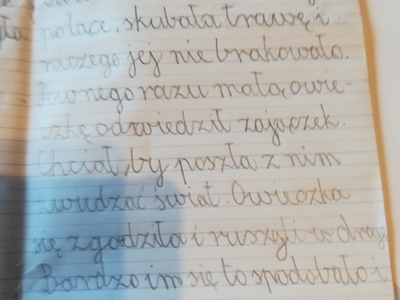 polace, skubała trawę i
niczego jej nie brakowało.
Pewnego razu małą owie-
czkę odwiedził zajączek.
Chciał, by poszła z nim
zwiedzać świat. Owieczka
się zgodziła i ruszyli w drogę
Bardzo im się to spodobało i